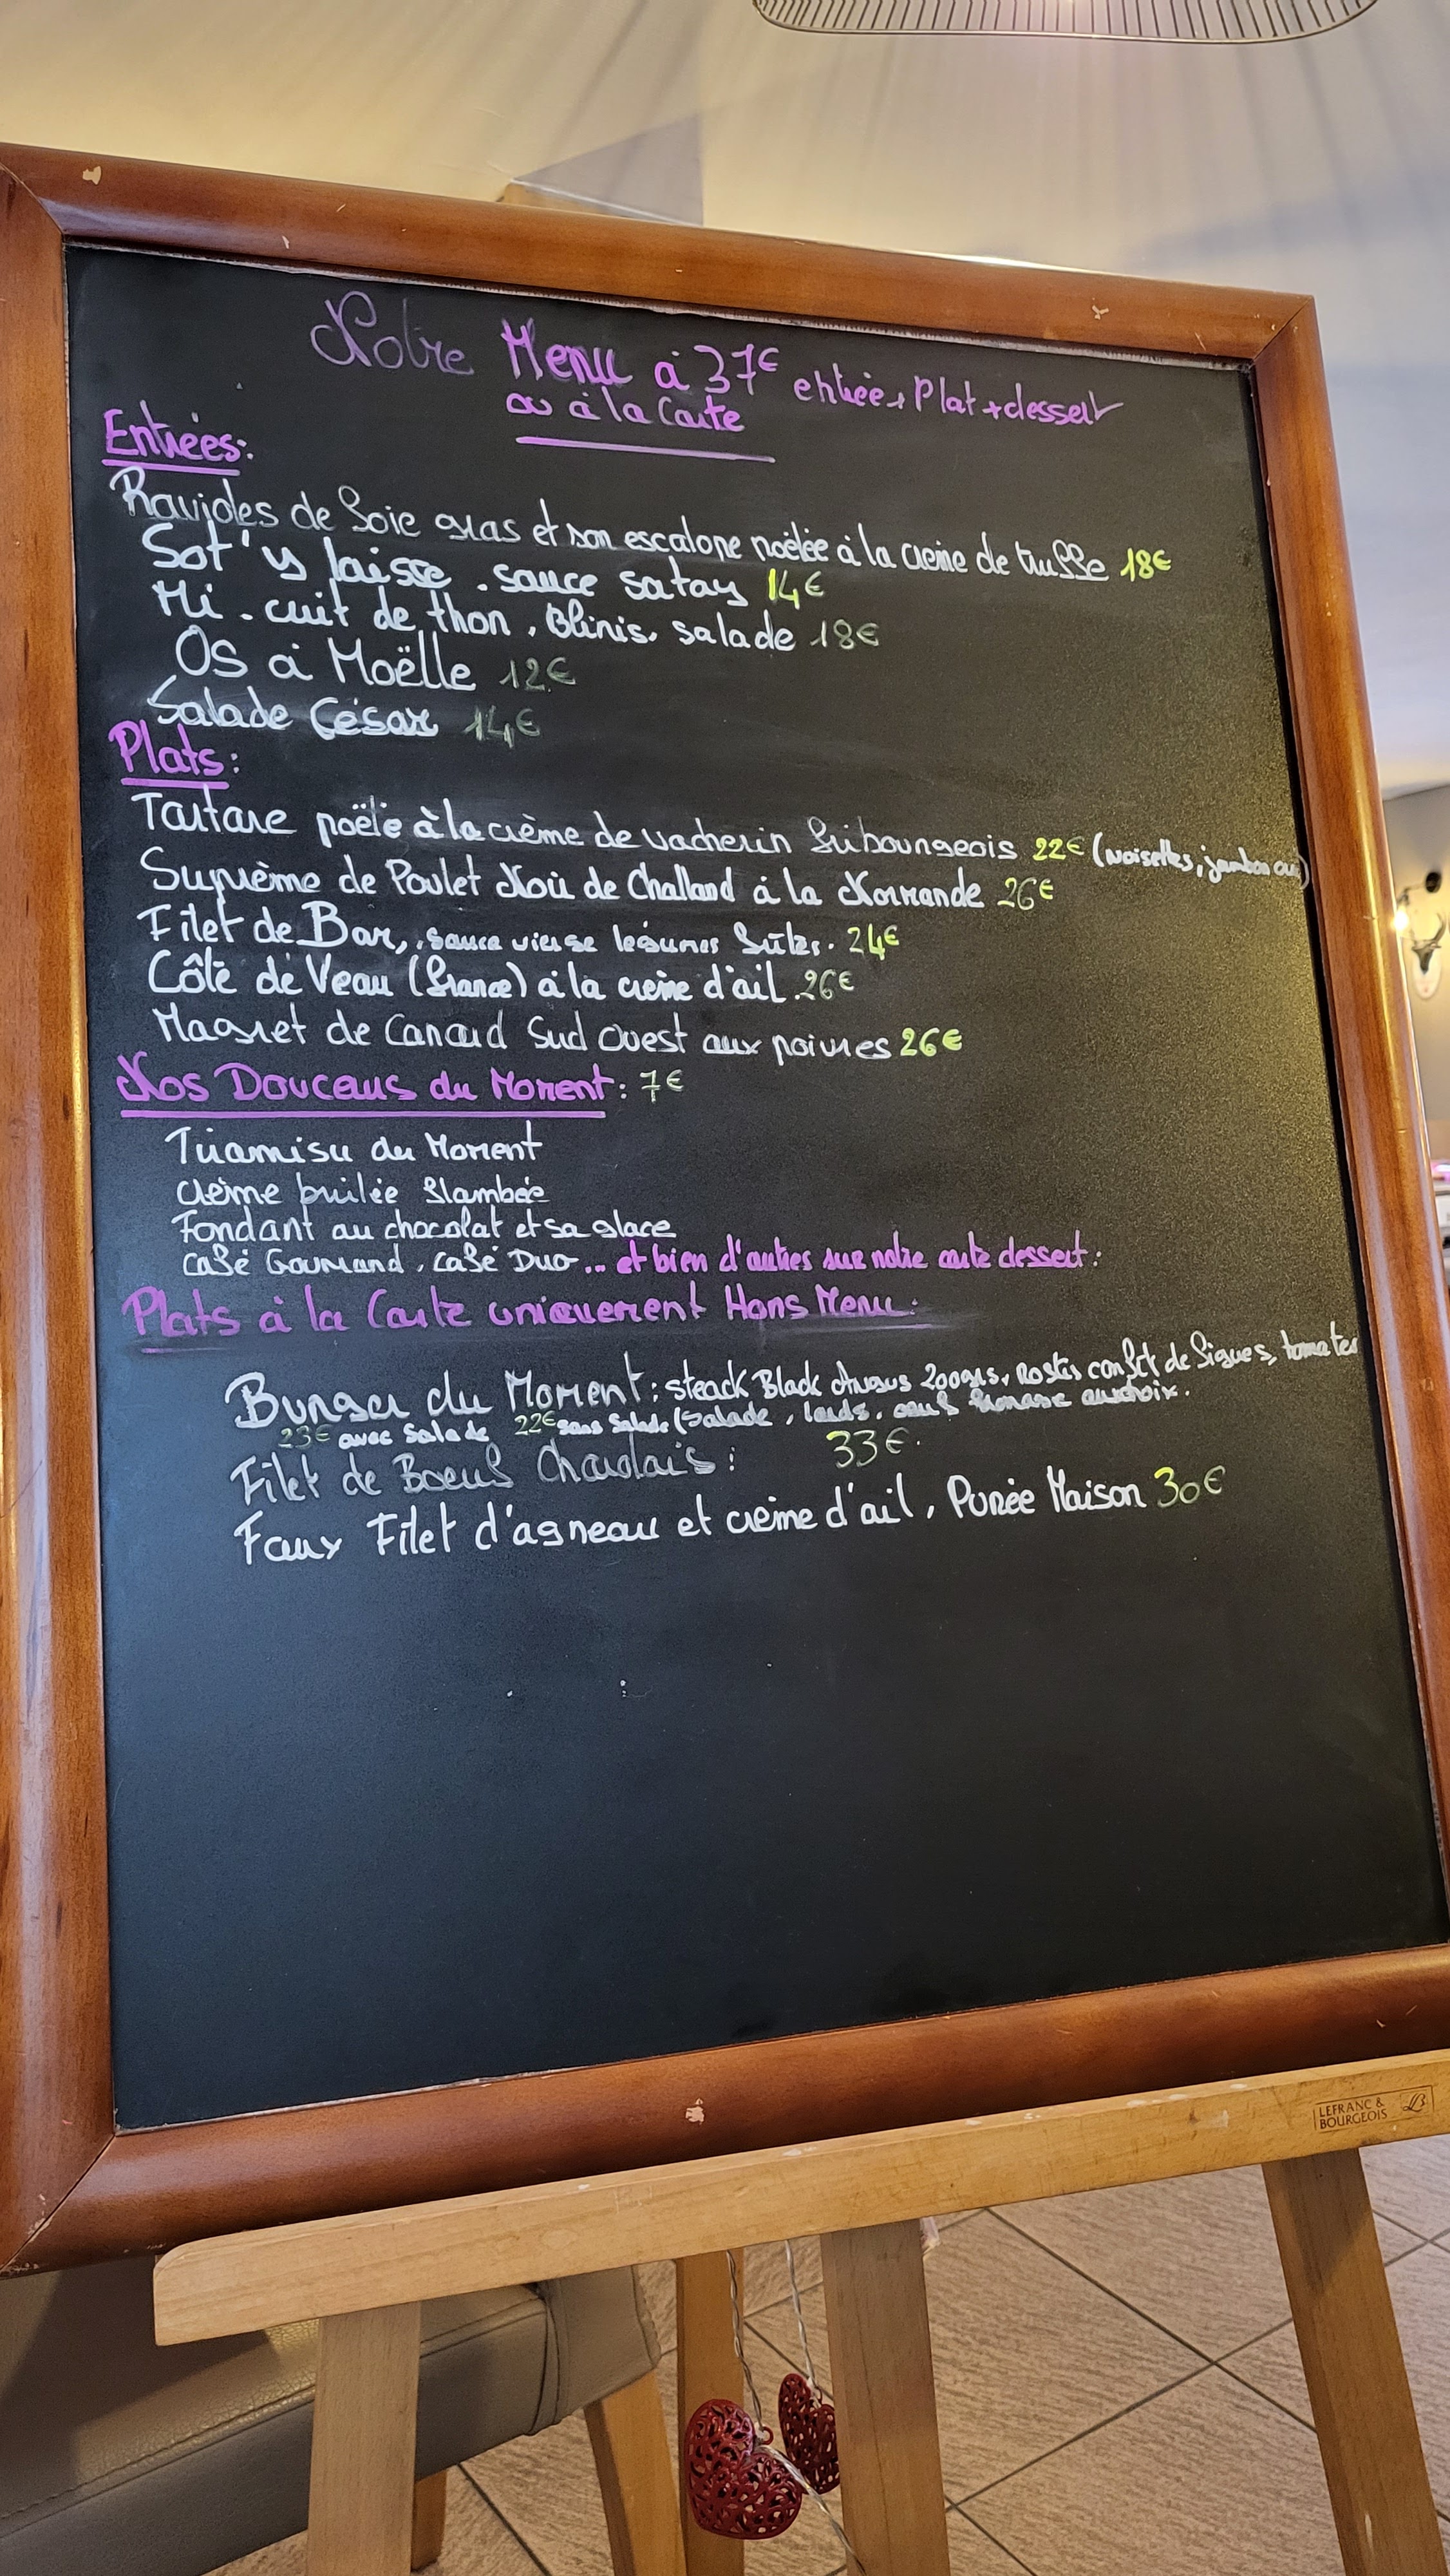 Notre Menu à 37€ entrée + Plat + dessert
ou à la Carte
Entrées:
Ravioles de foie gras et son escalope poêlée à la crème de truffe 18€
Sot'y laisse. sauce satay 14€
Mi-cuit de thon, Blinis, salade 18€
Os à Moëlle 12€
Salade César 14€
Plats:
Tartare poëlé à la crème de vacherin fribourgeois 22€ (noisettes, jambon cru)
Suprème de Poulet Noir de Challand à la Normande 26€
Filet de Bar, sauce vierge légumes frites. 24€
Côte de Veau (france) à la crème d'ail. 26€
Magret de Canard Sud Ouest aux poivres 26€
Nos Douceurs du Moment: 7€
Tiramisu du Moment
Crème brulée flambée
Fondant au chocolat et sa glace
Café Gourmand, Café Duo... et bien d'autres sur notre carte dessert:
Plats à la Carte uniquement Hors Menu:
Burger du Moment: steack Black Angus 200grs, Rostis confit de figues, tomates
23€ avec Salade 22€ sans Salade (Salade, lards, oeuf fromage au choix.
Filet de Boeuf Charolais: 33€.
Faux Filet d'agneau et crème d'ail, Purée Maison 30€
LEFRANC &
BOURGEOIS LB